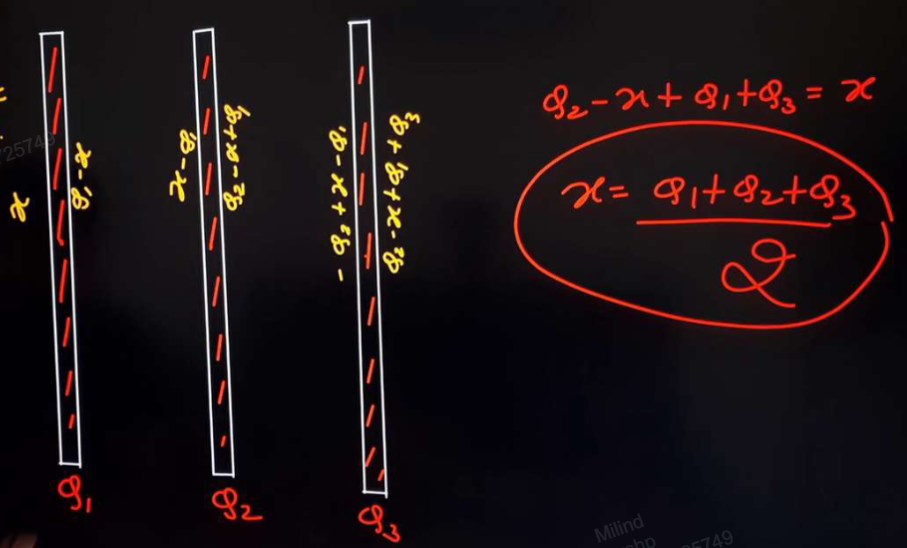 x
Q₁-x
Q₁
x-Q₁
Q₂-x+Q₁
Q₂
-Q₂+x-Q₁
Q₂-x+Q₁+Q₃
Q₃
Q₂-x+Q₁+Q₃=x
x= Q₁+Q₂+Q₃
2
25749
Milind
5749